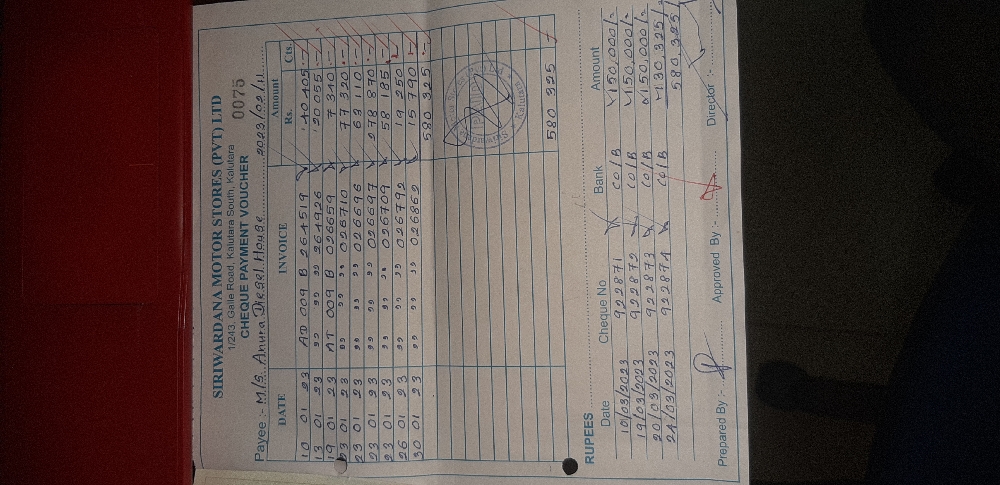 SIRIWARDANA MOTOR STORES (PVT) LTD
1/243, Galle Road, Kalutara South, Kalutara
CHEQUE PAYMENT VOUCHER 0075
Payee :- M/S. Anura Diesel House 2023/02/11
DATE INVOICE Amount
Rs. Cts.
10 01 23 AD 009 B 264519 40 405 -
13 01 23 " " " 264926 20 055 -
19 01 23 AT 009 B 026659 7 340 -
23 01 23 " " " 026710 77 320 -
23 01 23 " " " 026696 63 110 -
23 01 23 " " " 026697 278 870 -
23 01 23 " " " 026709 58 185 -
26 01 23 " " " 026792 19 250 -
30 01 23 " " " 026862 15 790 -
580 325 -
580 325 -
RUPEES
Date Cheque No Bank Amount
10/03/2023 922871 COIB 150,000/=
19/03/2023 922872 COIB 150,000/=
20/03/2023 922873 COIB 150,000/=
24/03/2023 922874 COIB 130,325/=
580,325/
Prepared By :- Approved By :- Director :-